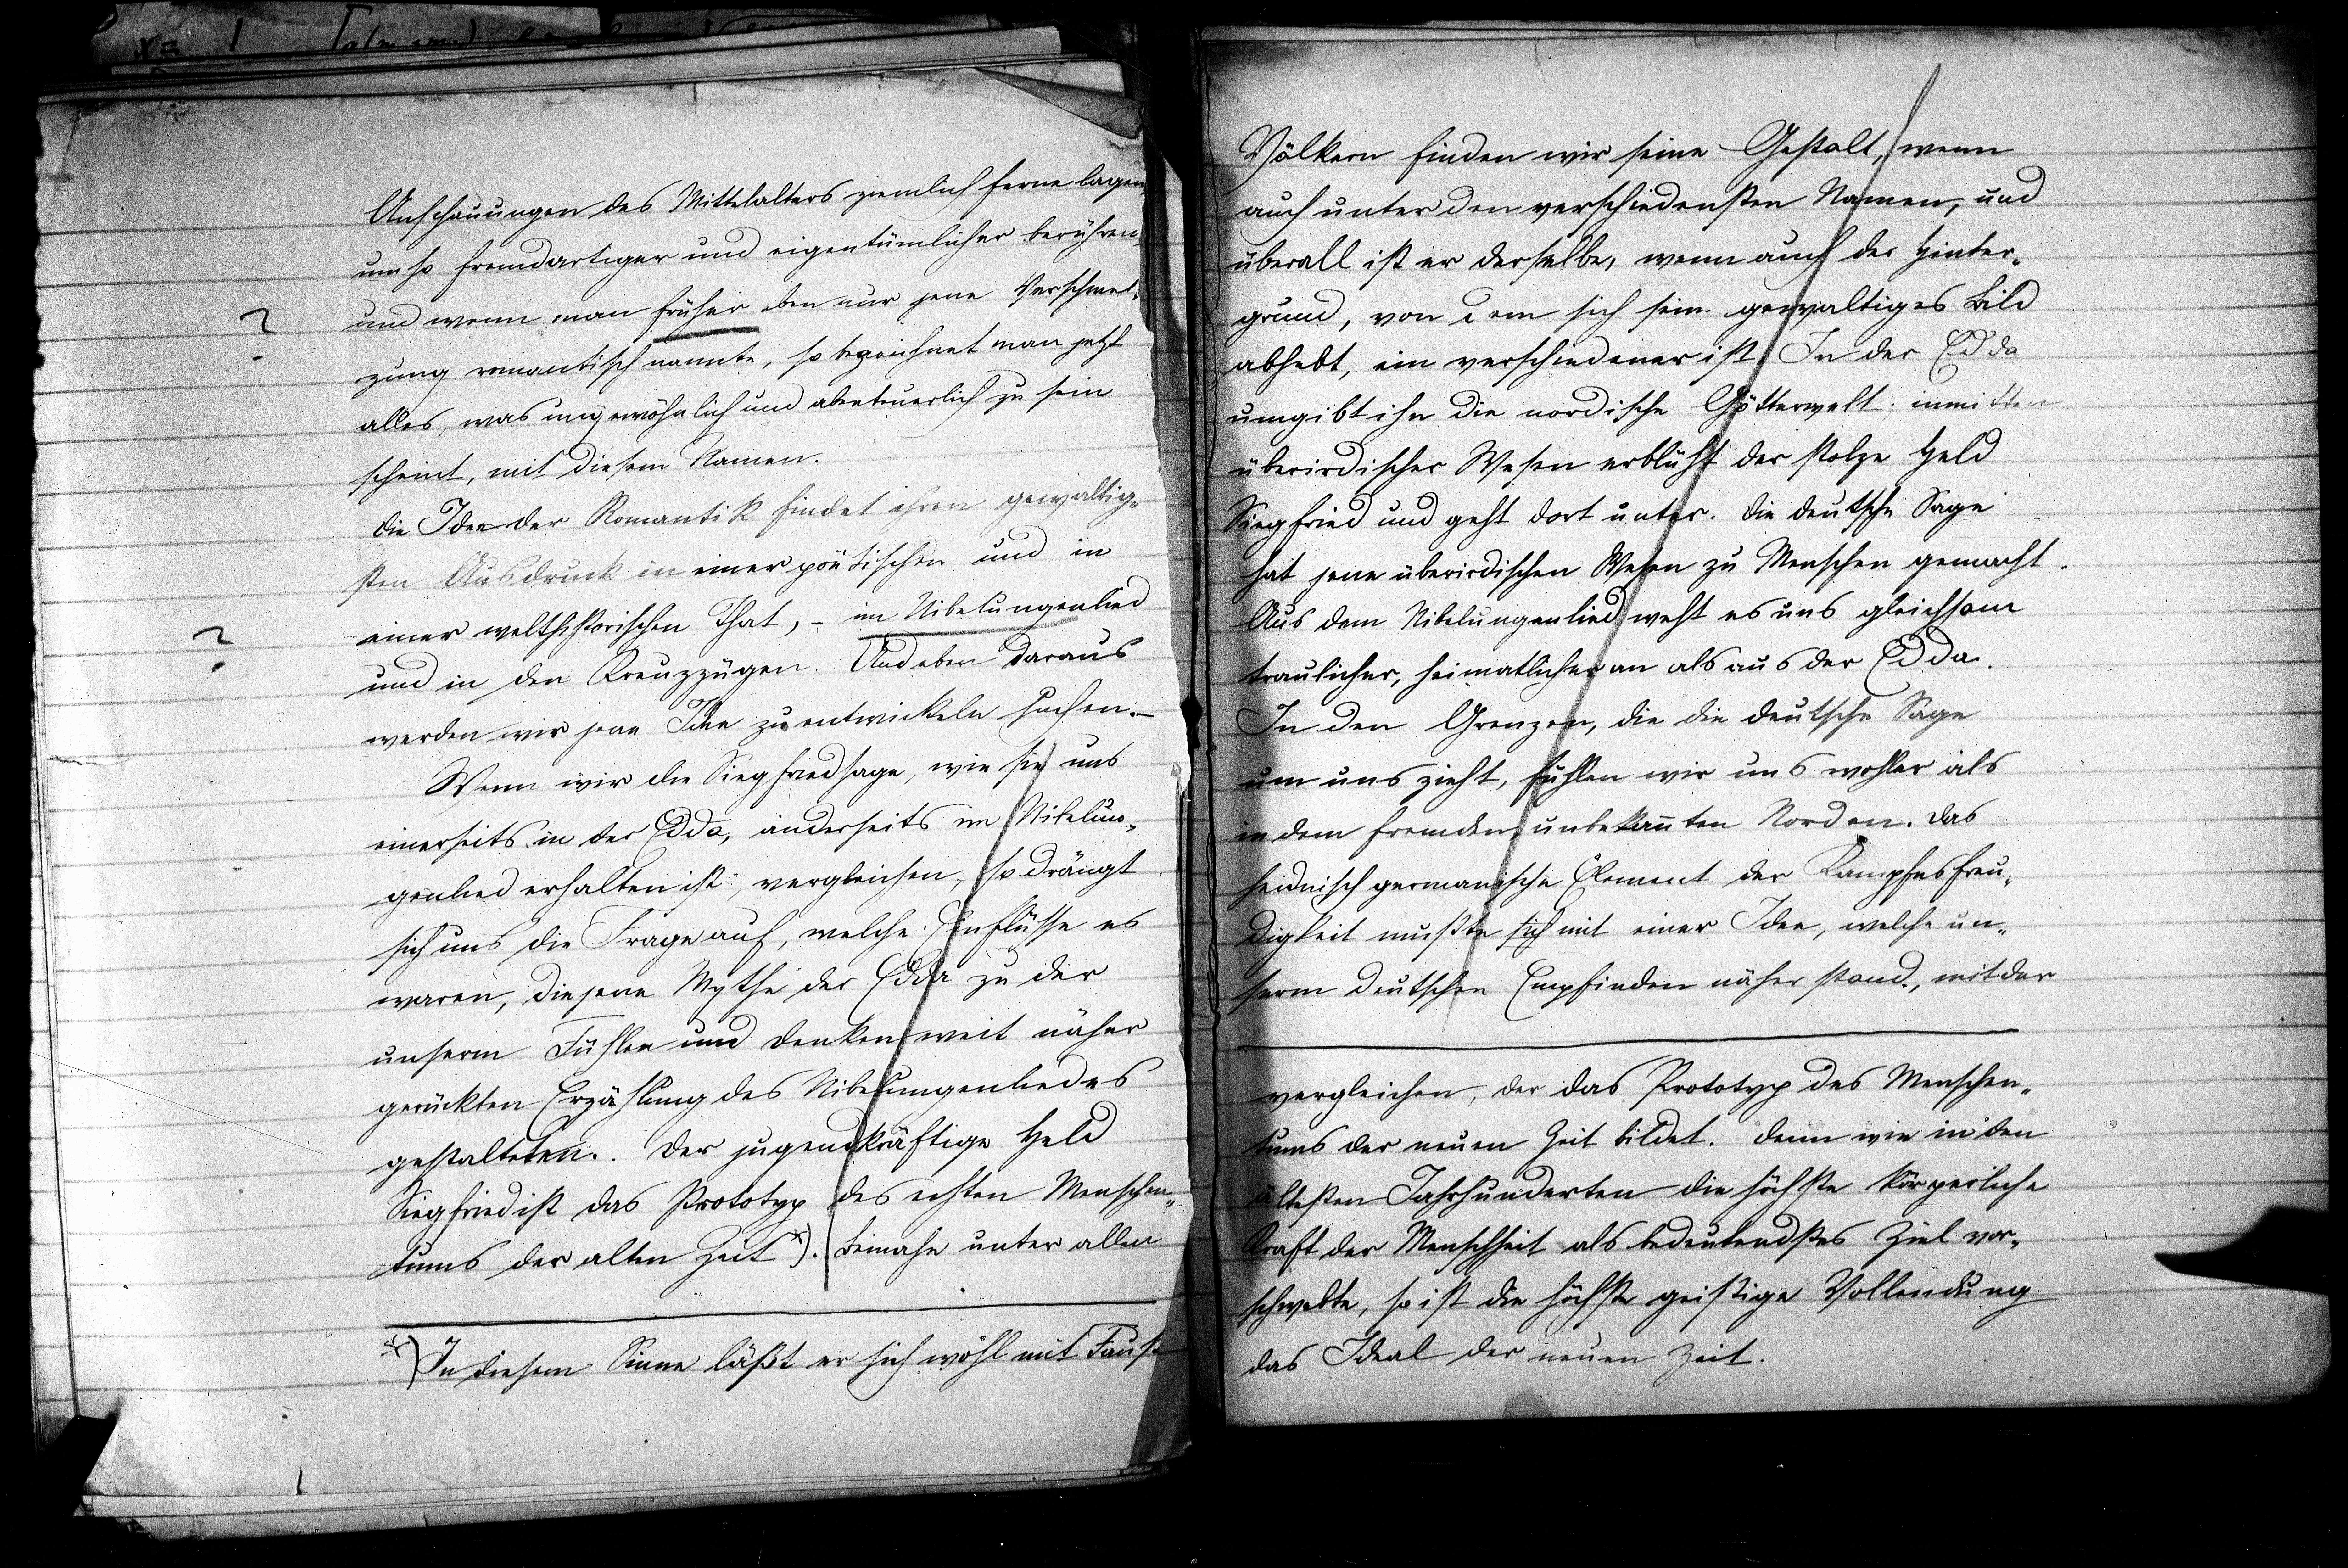 Anschauungen des Mittelalters ziemlich ferne lagen
um so fremdartiger und eigentümlicher berühren,
? und wenn man früher eben nur jene Verschmel„
zung romantisch nannte, so bezeichnet man jetzt
alles, was ungewöhnlich und abenteuerlich zu sein
scheint, mit diesem Namen.
Die Idee der Romantik findet ihren gewaltig„
sten Ausdruck in einer poëtischen und in
? einer welthistorischen That, – im Nibelungenlied
und in den Kreuzzügen. Und eben daraus
werden wir jene Idee zu entwickeln suchen. –
Wenn wir die Siegfriedsage, wie sie uns
einerseits in der Edda, anderseits im Nibelun„
genlied erhalten ist, vergleichen, so drängt
sich uns die Frage auf, welche Einflüsse es
waren, die jene Mythe der Edda zu der
unserm Fühlen und Denken weit näher
gerückten Erzählung des Nibelungenliedes
gestalteten. Der jugendkräftige Held
Siegfried ist das Prototyp des echten Menschen„
tums der alten Zeit *). Beinahe unter allen
*) In diesem Sinne läßt er sich wohl mit Faust
Völkern finden wir seine Gestalt, wenn
auch unter den verschiedensten Namen, und
überall ist er derselbe, wenn auch der Hinter„
grund, von dem sich sein gewaltiges Bild
abhebt, ein verschiedener ist. In der Edda
umgibt ihn die nordische Götterwelt; inmitten
überirdischer Wesen erblüht der stolze Held
Siegfried und geht dort unter. Die deutsche Sage
hat jene überirdischen Wesen zu Menschen gemacht.
Aus dem Nibelungenlied weht es uns gleichsam
traulicher, heimatlicher an als aus der Edda.
In den Grenzen, die die deutsche Sage
um uns zieht, fühlen wir uns wohler als
in dem fremden, unbekannten Norden. Das
heidnisch germanische Element der Kampfesfreu„
digkeit mußte sich mit einer Idee, welche un„
serm deutschen Empfinden näher stand, mit der
vergleichen, der das Prototyp des Menschen„
tums der neuen Zeit bildet. Denn wie in den
ältesten Jahrhunderten die höchste körperliche
Kraft der Menschheit als bedeutendstes Ziel vor„
schwebte, so ist die höchste geistige Vollendung
das Ideal der neuen Zeit.